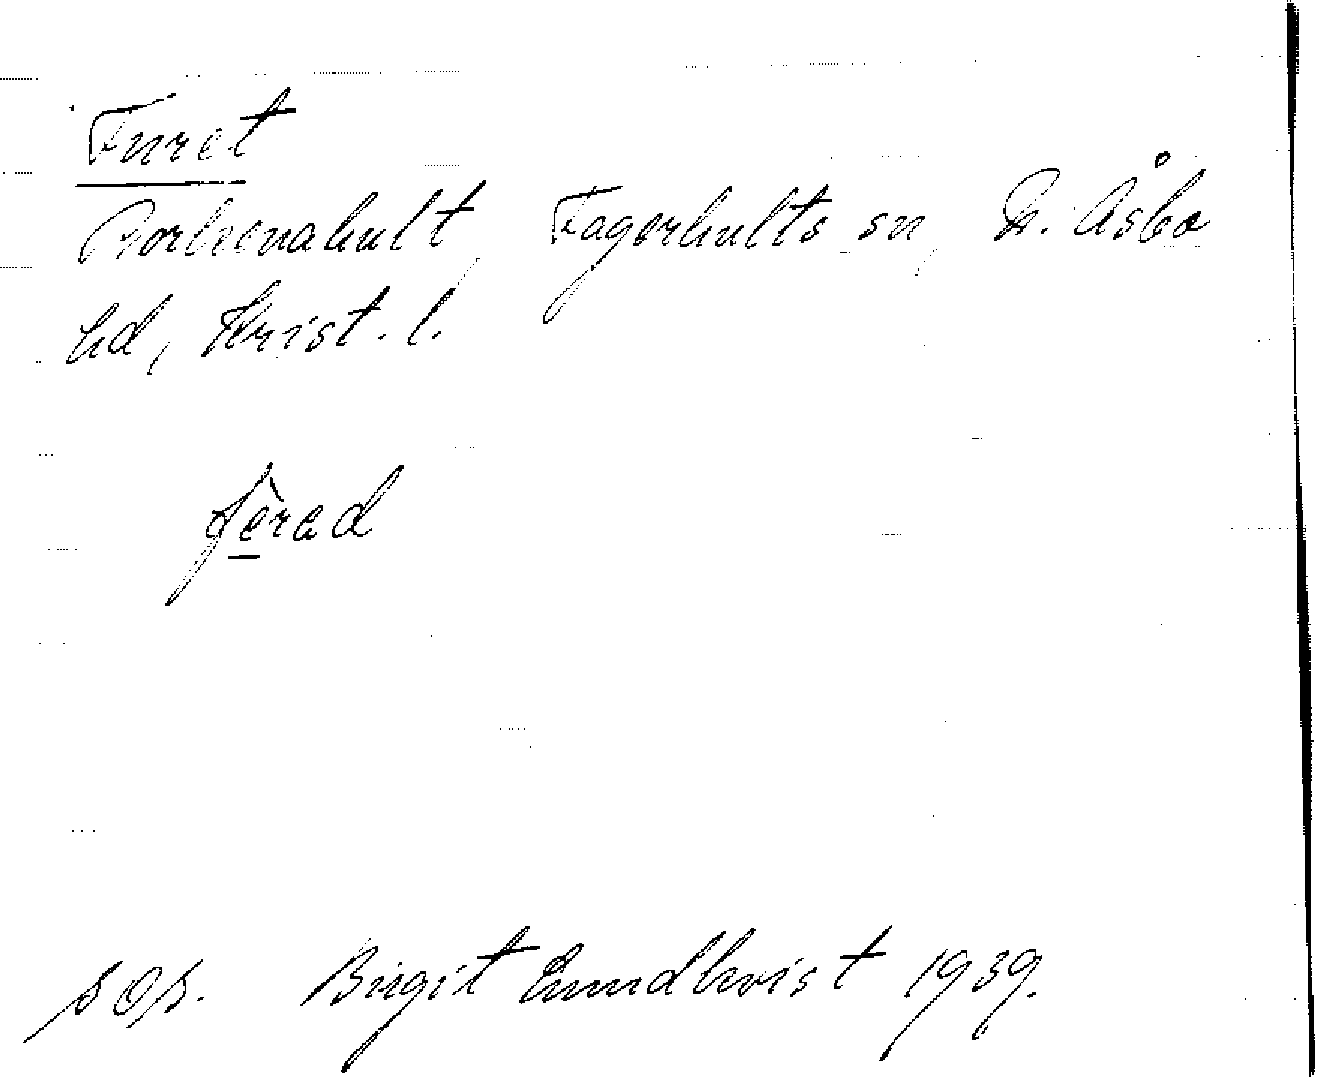 Furet
Porkenahult, Fagerhults sn, N. Åsbo
hd, Krist. l.
fè̱rad
Birgit Lundkvist 1939.